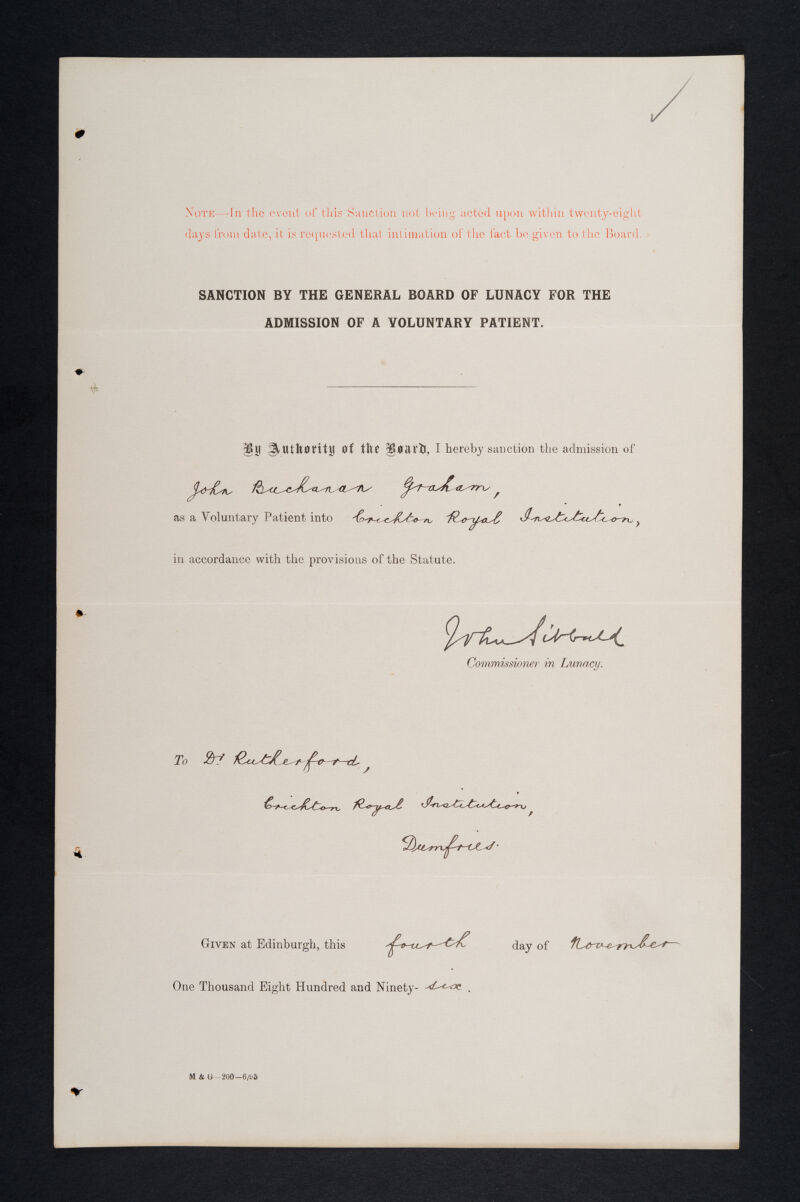 NOTE—In the event of this Sanction not being acted upon within twenty-eight
days from date, it is requested that intimation of the fact be given to the Board.
SANCTION BY THE GENERAL BOARD OF LUNACY FOR THE
ADMISSION OF A VOLUNTARY PATIENT.
By Authority of the Board, I hereby sanction the admission of
John Buchanan Graham,
as a Voluntary Patient into Crichton Royal Institution,
in accordance with the provisions of the Statute.
John Sibbald
Commissioner in Lunacy.
To Dr Rutherford,
Crichton Royal Institution,
Dumfries.
GIVEN at Edinburgh, this fourth day of November
One Thousand Eight Hundred and Ninety- six .
M & G—200—6/95